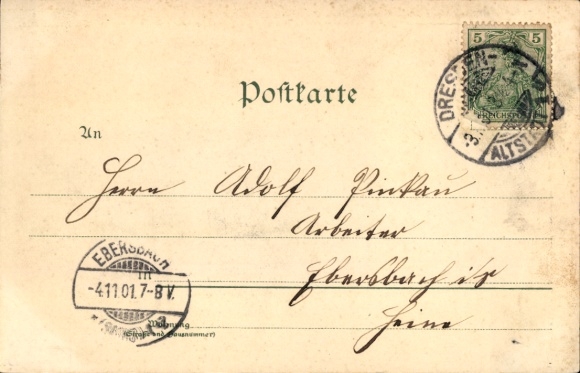 5 5
DRESDEN-
ALTST.
3.
REICHSPOST
Postkarte
An
Herrn Adolf Pinkau
Arbeiter
Ebersbach i/s
EBERSBACH
-4.11.01.7-8 V.
Wohnung
(Straße und Hausnummer)